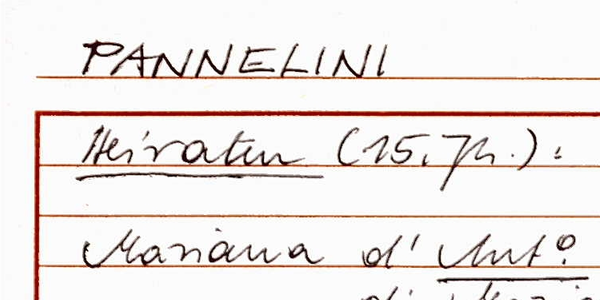 PANNELINI
Heiraten (15. Jh.):
Mariana d' Antº.
di